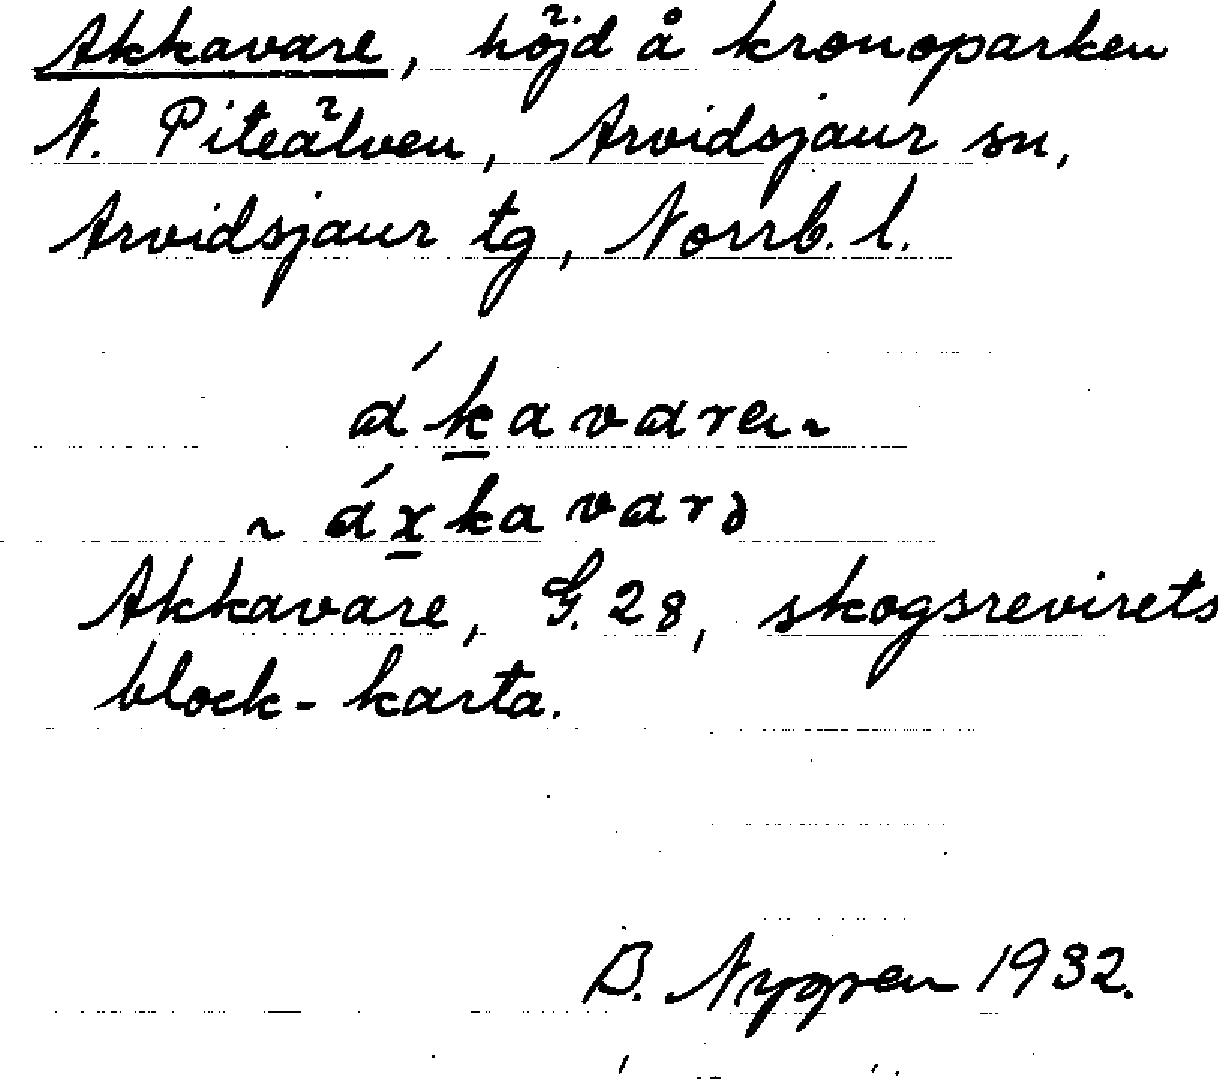 Akkavare, höjd å kronoparken
N. Piteälven, Arvidsjaur sn,
Arvidsjaur tg, Norrb. l.
ákavaren ~
~ áxkavarə
Akkavare, G. 28, skogsrevirets
block-karta.
B. Nygren 1932.